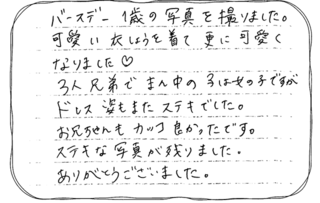 バースデー 1歳の写真を撮りました。
可愛い衣しょうを着て更に可愛く
なりました♡
3人兄弟でまん中の子は女の子ですが
ドレス姿もまたステキでした。
お兄ちゃんもカッコ良かったです。
ステキな写真が残りました。
ありがとうございました。